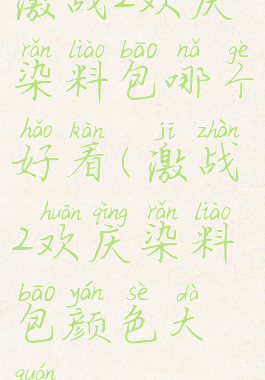 激战2欢庆
rǎn liào bāo nǎ gè
染料包哪个
hǎo kàn jī zhàn
好看(激战
huān qìng rǎn liào
2欢庆染料
bāo yán sè dà
包颜色大
quán